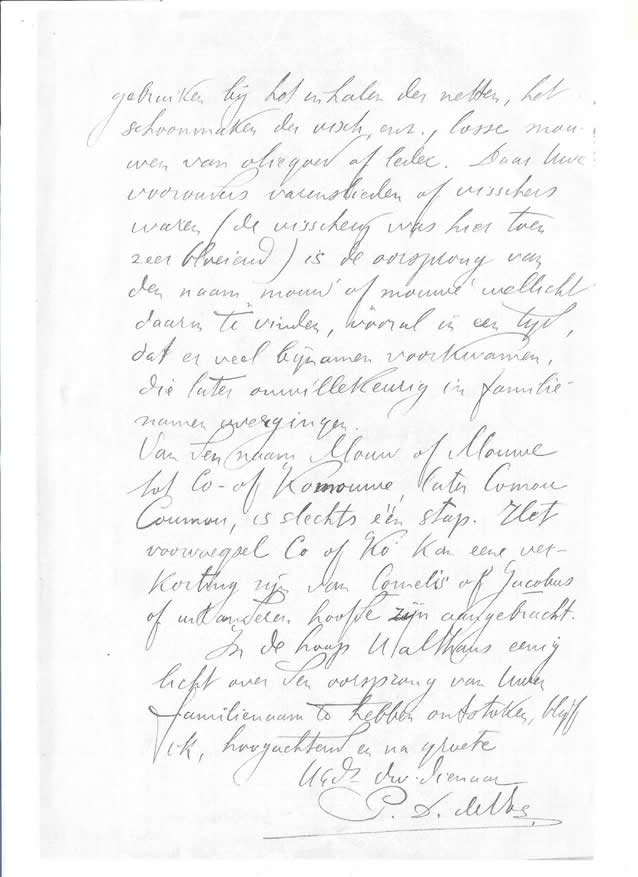 gebruiken bij het inhalen der netten, het
schoonmaken der visch, enz., losse mou-
wen van oliegoed of leder. Daar Uwe
voorouders varenslieden of visschers
waren (de visscherij was hier toen
zeer bloeiend) is de oorsprong van
den naam "mouw" of mouwe" wellicht
daarin te vinden, vooral in een tijd,
dat er veel bijnamen voorkwamen,
die later onwillekeurig in familie-
namen overgingen.
Van den naam Mouw of Mouwe
tot Co- of Komouwe, later Comou
Coumou, is slechts één stap. Het
voorvoegsel Co of Ko kan eene ver-
korting zijn van Cornelis of Jacobus
of uit anderen hoofde zijn aangebracht.
In de hoop U althans eenig
licht over den oorsprong van Uwen
familienaam te hebben ontstoken, blijf
ik, hoogachtend en na groete
UEd. dw. dienaar
P. D. de Vos